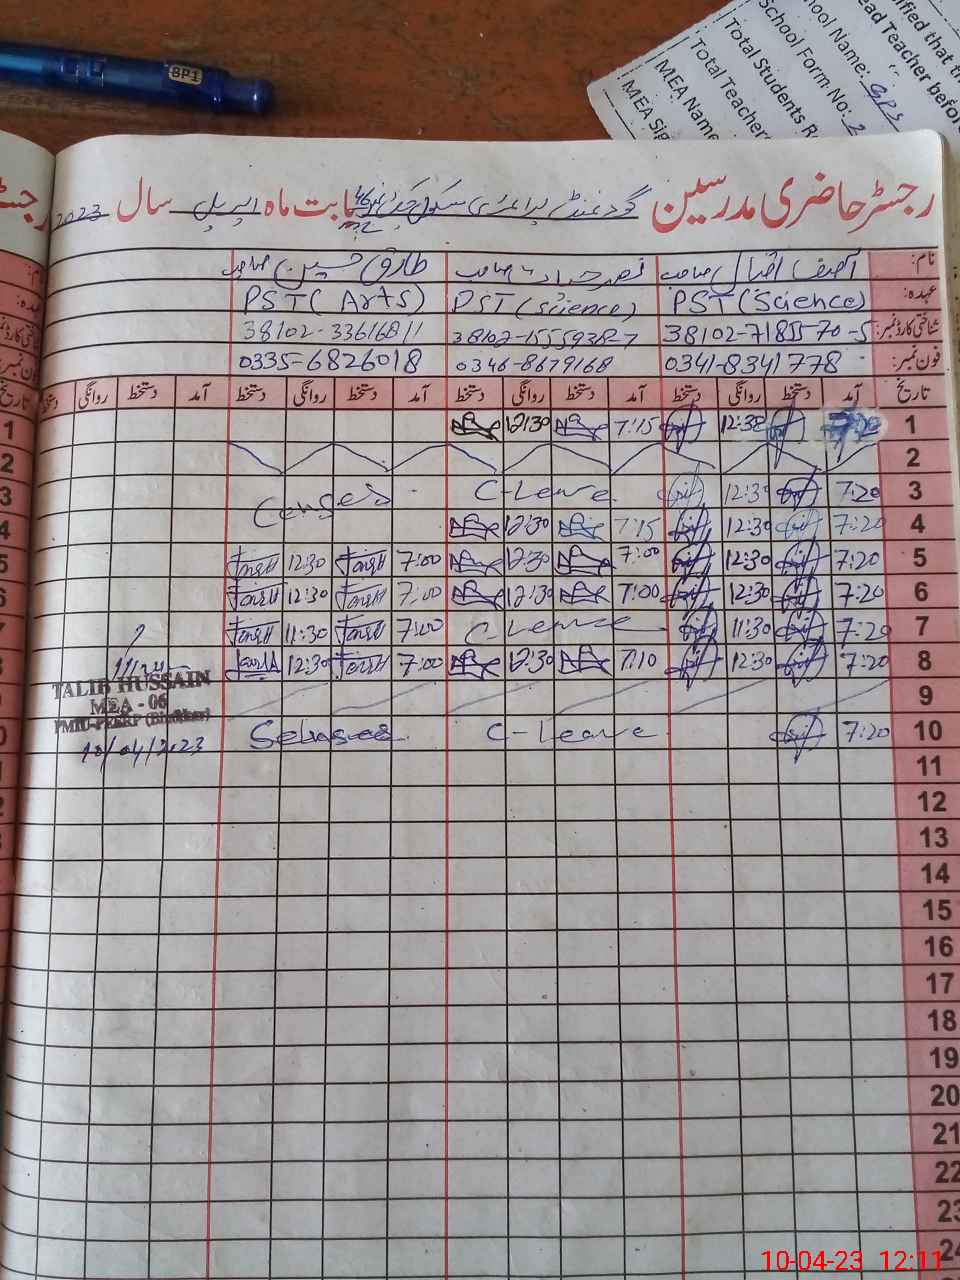 BP1
ified that th
ead Teacher before
ool Name:- GPS
School Form No: 2
Total Students R
Total Teacher
MEA Name
MEA Sig
رجسٹر حاضری مدرسین گورنمنٹ پرائمری سکول بابت ماہ اپریل سال 2023
نام: آصف اقبال صاحب طارق حسین صاحب
عہدہ: PST (Science) PST (Science) PST (Arts)
شناختی کارڈ نمبر: 38102-71855-70-5 38102-1555938-7 38102-33616811
فون نمبر: 0341-8341778 0346-8679168 0335-6826018
تاریخ آمد دستخط روانگی دستخط آمد دستخط روانگی دستخط آمد دستخط روانگی دستخط آمد دستخط روانگی
1 7:20 12:30 7:15 12:30
2
3 7:20 12:30 C-Leave Census
4 7:20 12:30 7:15 12:30
5 7:20 12:30 7:00 12:30 7:00 12:30
6 7:20 12:30 7:00 12:30 7:00 12:30
7 7:20 11:30 C-Leave 7:00 11:30
8 7:20 12:30 7:10 12:30 7:00 12:30
TALIB HUSSAIN
MEA - 06
9
10 7:20 C-Leave
10/04/2023
11
12
13
14
15
16
17
18
19
20
21
22
23
24
10-04-23 12:11